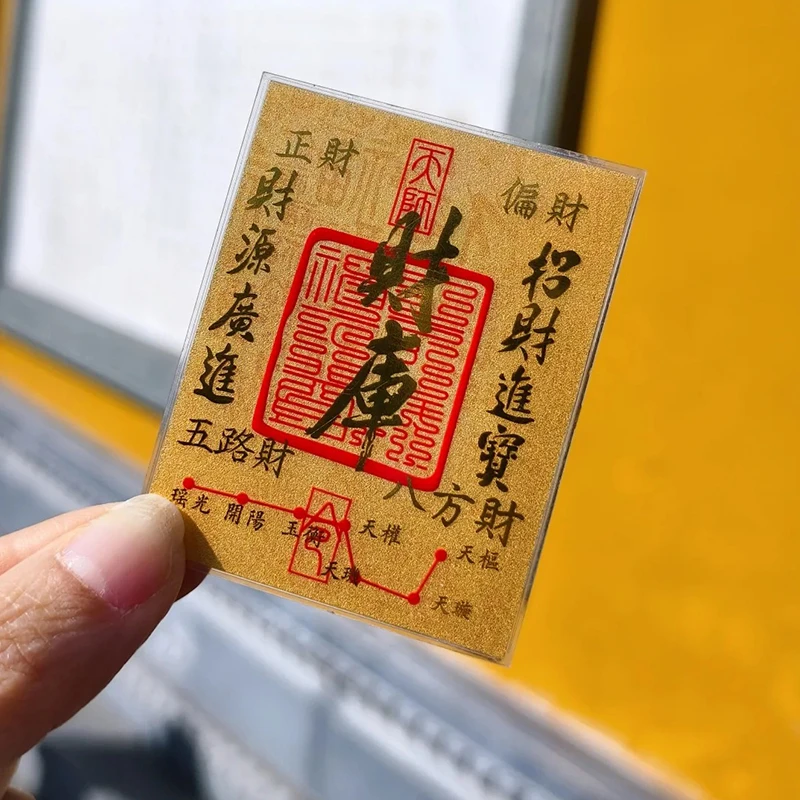 正財
天師
偏財
財源廣進
財庫
招財進寶
五路財
八方財
瑤光
開陽
玉衡
天權
天璣
天樞
天璇
令